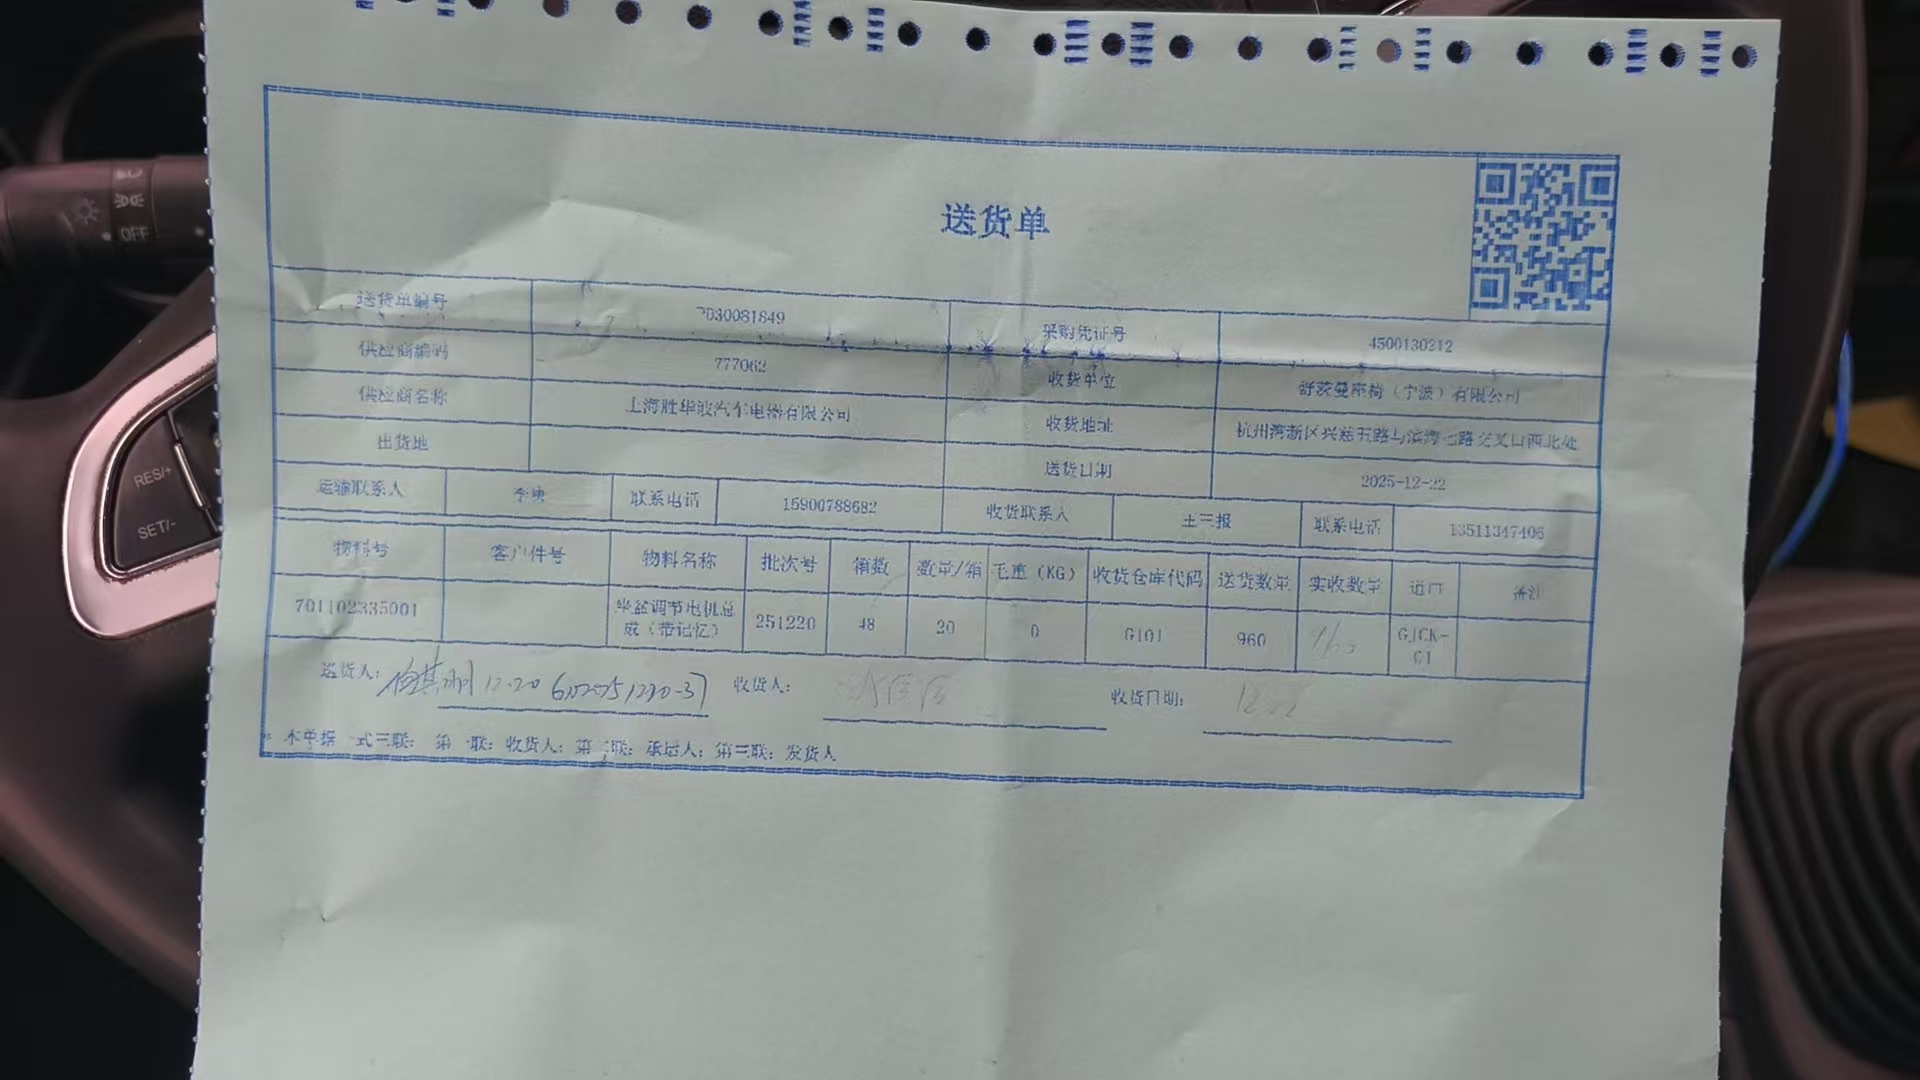 送货单
送货单编号 PD30081849 采购凭证号 4500130212
供应商编码 777062 收货单位 舒茨曼座椅（宁波）有限公司
供应商名称 上海胜华波汽车电器有限公司 收货地址 杭州湾新区兴慈五路与滨海七路交叉口西北处
出货地 送货日期 2025-12-22
运输联系人 李 联系电话 15900788682 收货联系人 王三报 联系电话 13511347406
物料号 客户件号 物料名称 批次号 箱数 数量/箱 毛重（KG） 收货仓库代码 送货数量 实收数量 道口 备注
701102335001 坐盆调节电机总成（带记忆） 251220 48 20 0 G101 960 960 GJCK-G1
送货人： 12.20 收货人： 收货日期： 12.22
* 本单据一式三联：第一联：收货人；第二联：承运人；第三联：发货人
OFF
RES/+
SET/-